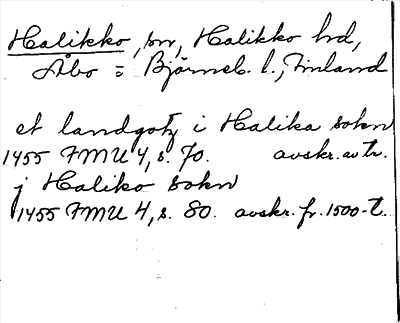 Halikko, sn, Halikko hd,
Åbo = Björneb. l., Finland
et landgotz i Halika sokn
1455 FMU 4, s. 70. avskr. av tr.
j Haliko sokn
1455 FMU 4, s. 80. avskr. fr. 1500-t.